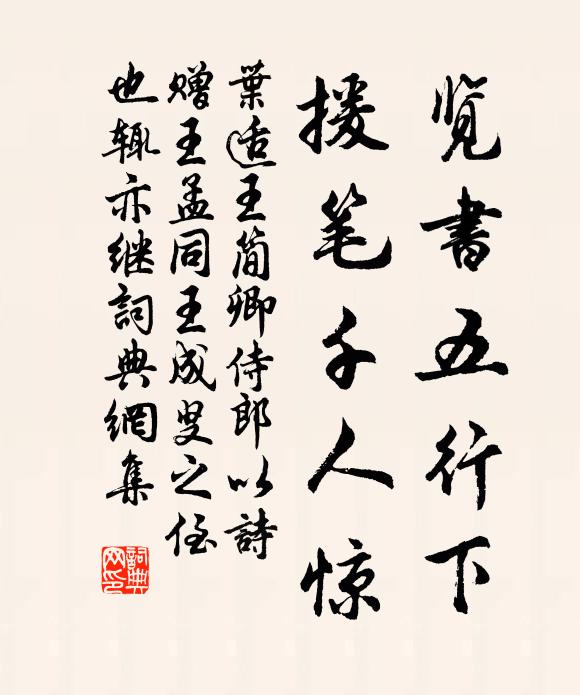 览書五行下
援笔千人惊
葉适王简卿侍郎以詩
赠王孟同王成叟之侄
也辄亦继詞典網集
詞典网印